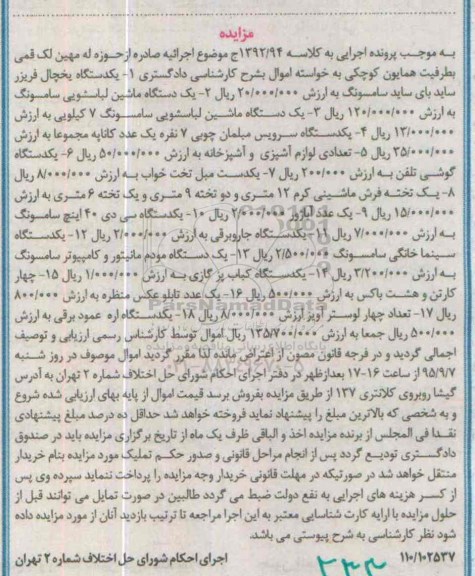 مزایده
به موجب پرونده اجرایی به کلاسه ۱۳۹۲/۹۴ج موضوع اجرائیه صادره از حوزه له مهین لک قمی
بطرفیت همایون کوچکی به خواسته اموال بشرح کارشناسی دادگستری ۱- یکدستگاه یخچال فریزر
ساید بای ساید سامسونگ به ارزش ۲۰/۰۰۰/۰۰۰ ریال ۲- یک دستگاه ماشین لباسشویی سامسونگ
به ارزش ۱۲۰/۰۰۰/۰۰۰ ریال ۳- یک دستگاه ماشین لباسشویی سامسونگ ۷ کیلویی به ارزش
۱۳/۰۰۰/۰۰۰ ریال ۴- یکدستگاه سرویس مبلمان چوبی ۷ نفره یک عدد کاناپه مجموعا به ارزش
۳۵/۰۰۰/۰۰۰ ریال ۵- تعدادی لوازم آشپزی و آشپزخانه به ارزش ۵۰/۰۰۰/۰۰۰ ریال ۶- یکدستگاه
گوشی تلفن به ارزش ۲۰۰/۰۰۰ ریال ۷- یکدست مبل تخت خواب به ارزش ۸/۰۰۰/۰۰۰ ریال
۸- یک تخته فرش ماشینی کرم ۱۲ متری و دو تخته ۹ متری و یک تخته ۶ متری به ارزش
۱۵/۰۰۰/۰۰۰ ریال ۹- یک عدد آباژور ۲/۰۰۰/۰۰۰ ریال ۱۰- یکدستگاه سی دی ۴۰ اینچ سامسونگ
به ارزش ۷/۰۰۰/۰۰۰ ریال ۱۱- یکدستگاه جاروبرقی به ارزش ۲/۰۰۰/۰۰۰ ریال ۱۲- یکدستگاه
سینما خانگی سامسونگ ۲/۵۰۰/۰۰۰ ریال ۱۳- یک دستگاه مودم مانیتور و کامپیوتر سامسونگ
به ارزش ۳/۲۰۰/۰۰۰ ریال ۱۴- یکدستگاه کباب پز گازی به ارزش ۱/۰۰۰/۰۰۰ ریال ۱۵- چهار
کارتن و هشت باکس به ارزش ۵۰۰/۰۰۰ ریال ۱۶- یک عدد تابلو عکس منظره به ارزش ۸۰۰/۰۰۰
ریال ۱۷- تعداد چهار لوستر آویز ارزش ۸/۰۰۰/۰۰۰ ریال ۱۸- یکدستگاه اره عمود برقی به ارزش
۵۰۰/۰۰۰ ریال جمعا به ارزش ۱۳۵/۷۰۰/۰۰۰ ریال اموال توسط کارشناس رسمی ارزیابی و توصیف
اجمالی گردید و در فرجه قانونی مصون از اعتراض مانده لذا مقرر گردید اموال موصوف در روز شنبه
۹۵/۹/۷ از ساعت ۱۶-۱۷ بعدازظهر در دفتر اجرای احکام شورای حل اختلاف شماره ۲ تهران به آدرس
گیشا روبروی کلانتری ۱۳۷ از طریق مزایده بفروش برسد قیمت اموال از پایه بهای ارزیابی شده شروع
و به شخصی که بالاترین مبلغ را پیشنهاد نماید فروخته خواهد شد حداقل ده درصد مبلغ پیشنهادی
نقدا فی المجلس از برنده مزایده اخذ و الباقی ظرف یک ماه از تاریخ برگزاری مزایده باید در صندوق
دادگستری تودیع گردد پس از انجام مراحل قانونی و صدور حکم تملیک مورد مزایده بنام خریدار
منتقل خواهد شد در صورتیکه در مهلت قانونی خریدار وجه مزایده را پرداخت ننماید سپرده وی پس
از کسر هزینه های اجرایی به نفع دولت ضبط می گردد طالبین در صورت تمایل می توانند قبل از
حلول مزایده با ارایه کارت شناسایی معتبر به این اجرا مراجعه تا ترتیب بازدید آنان از مورد مزایده داده
شود نظر کارشناسی به شرح پیوستی می باشد.
۱۱۰/۱۰۲۵۳۷ اجرای احکام شورای حل اختلاف شماره ۲ تهران